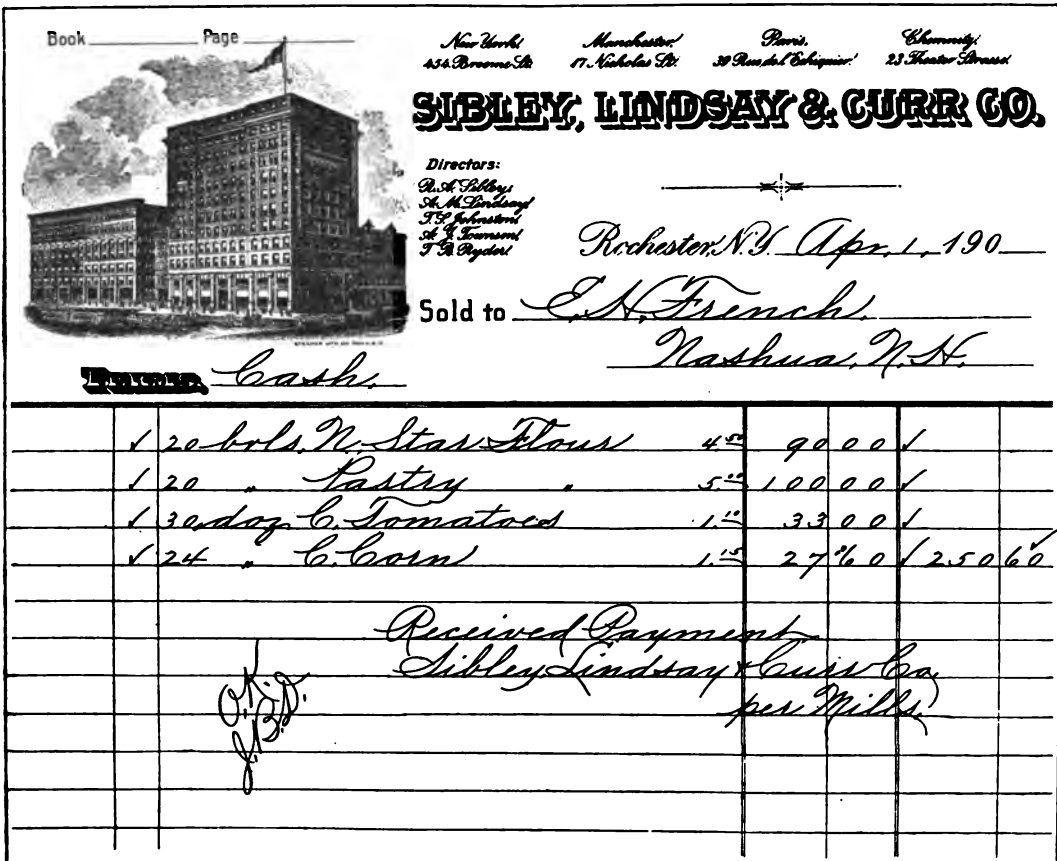 Book Page
New York. Manchester. Paris. Chemnitz.
454 Broome St. 17 Nicholas St. 30 Rue de l'Echiquier. 23 Theater Strasse.
SIBLEY, LINDSAY & CURR CO.
Directors:
R. A. Sibley
A. M. Lindsay
T. S. Johnston
A. J. Townson
T. B. Ryder
Rochester, N.Y. Apr. 1, 190
Sold to E. H. French,
Nashua, N.H.
Terms, Cash.
✓ 20 bbls. N. Star Flour 4.50 90 00 ✓
✓ 20 " Pastry " 5.00 100 00 ✓
✓ 30 doz C. Tomatoes 1.10 33 00 ✓
✓ 24 " C. Corn 1.15 27 60 ✓ 250 60 ✓
Received Payment
Sibley Lindsay & Curr Co,
per Mills.
O.K.
J.B.D.